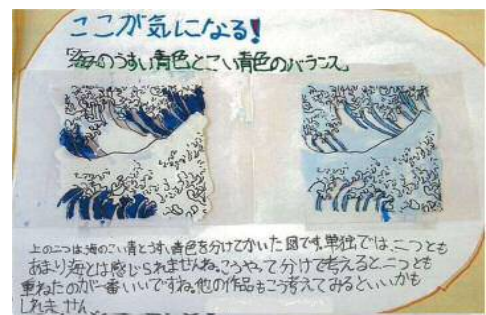 ここが気になる!
「海のうすい青色とこい青色のバランス」
上の二つは、海のこい青とうすい青色を分けてかいた図です。単独では、二つとも
あまり海とは感じられませんね。こうやって分けて考えると、二つとも
重ねたのが一番いいですね。他の作品もこう考えてみるといいかも
しれません